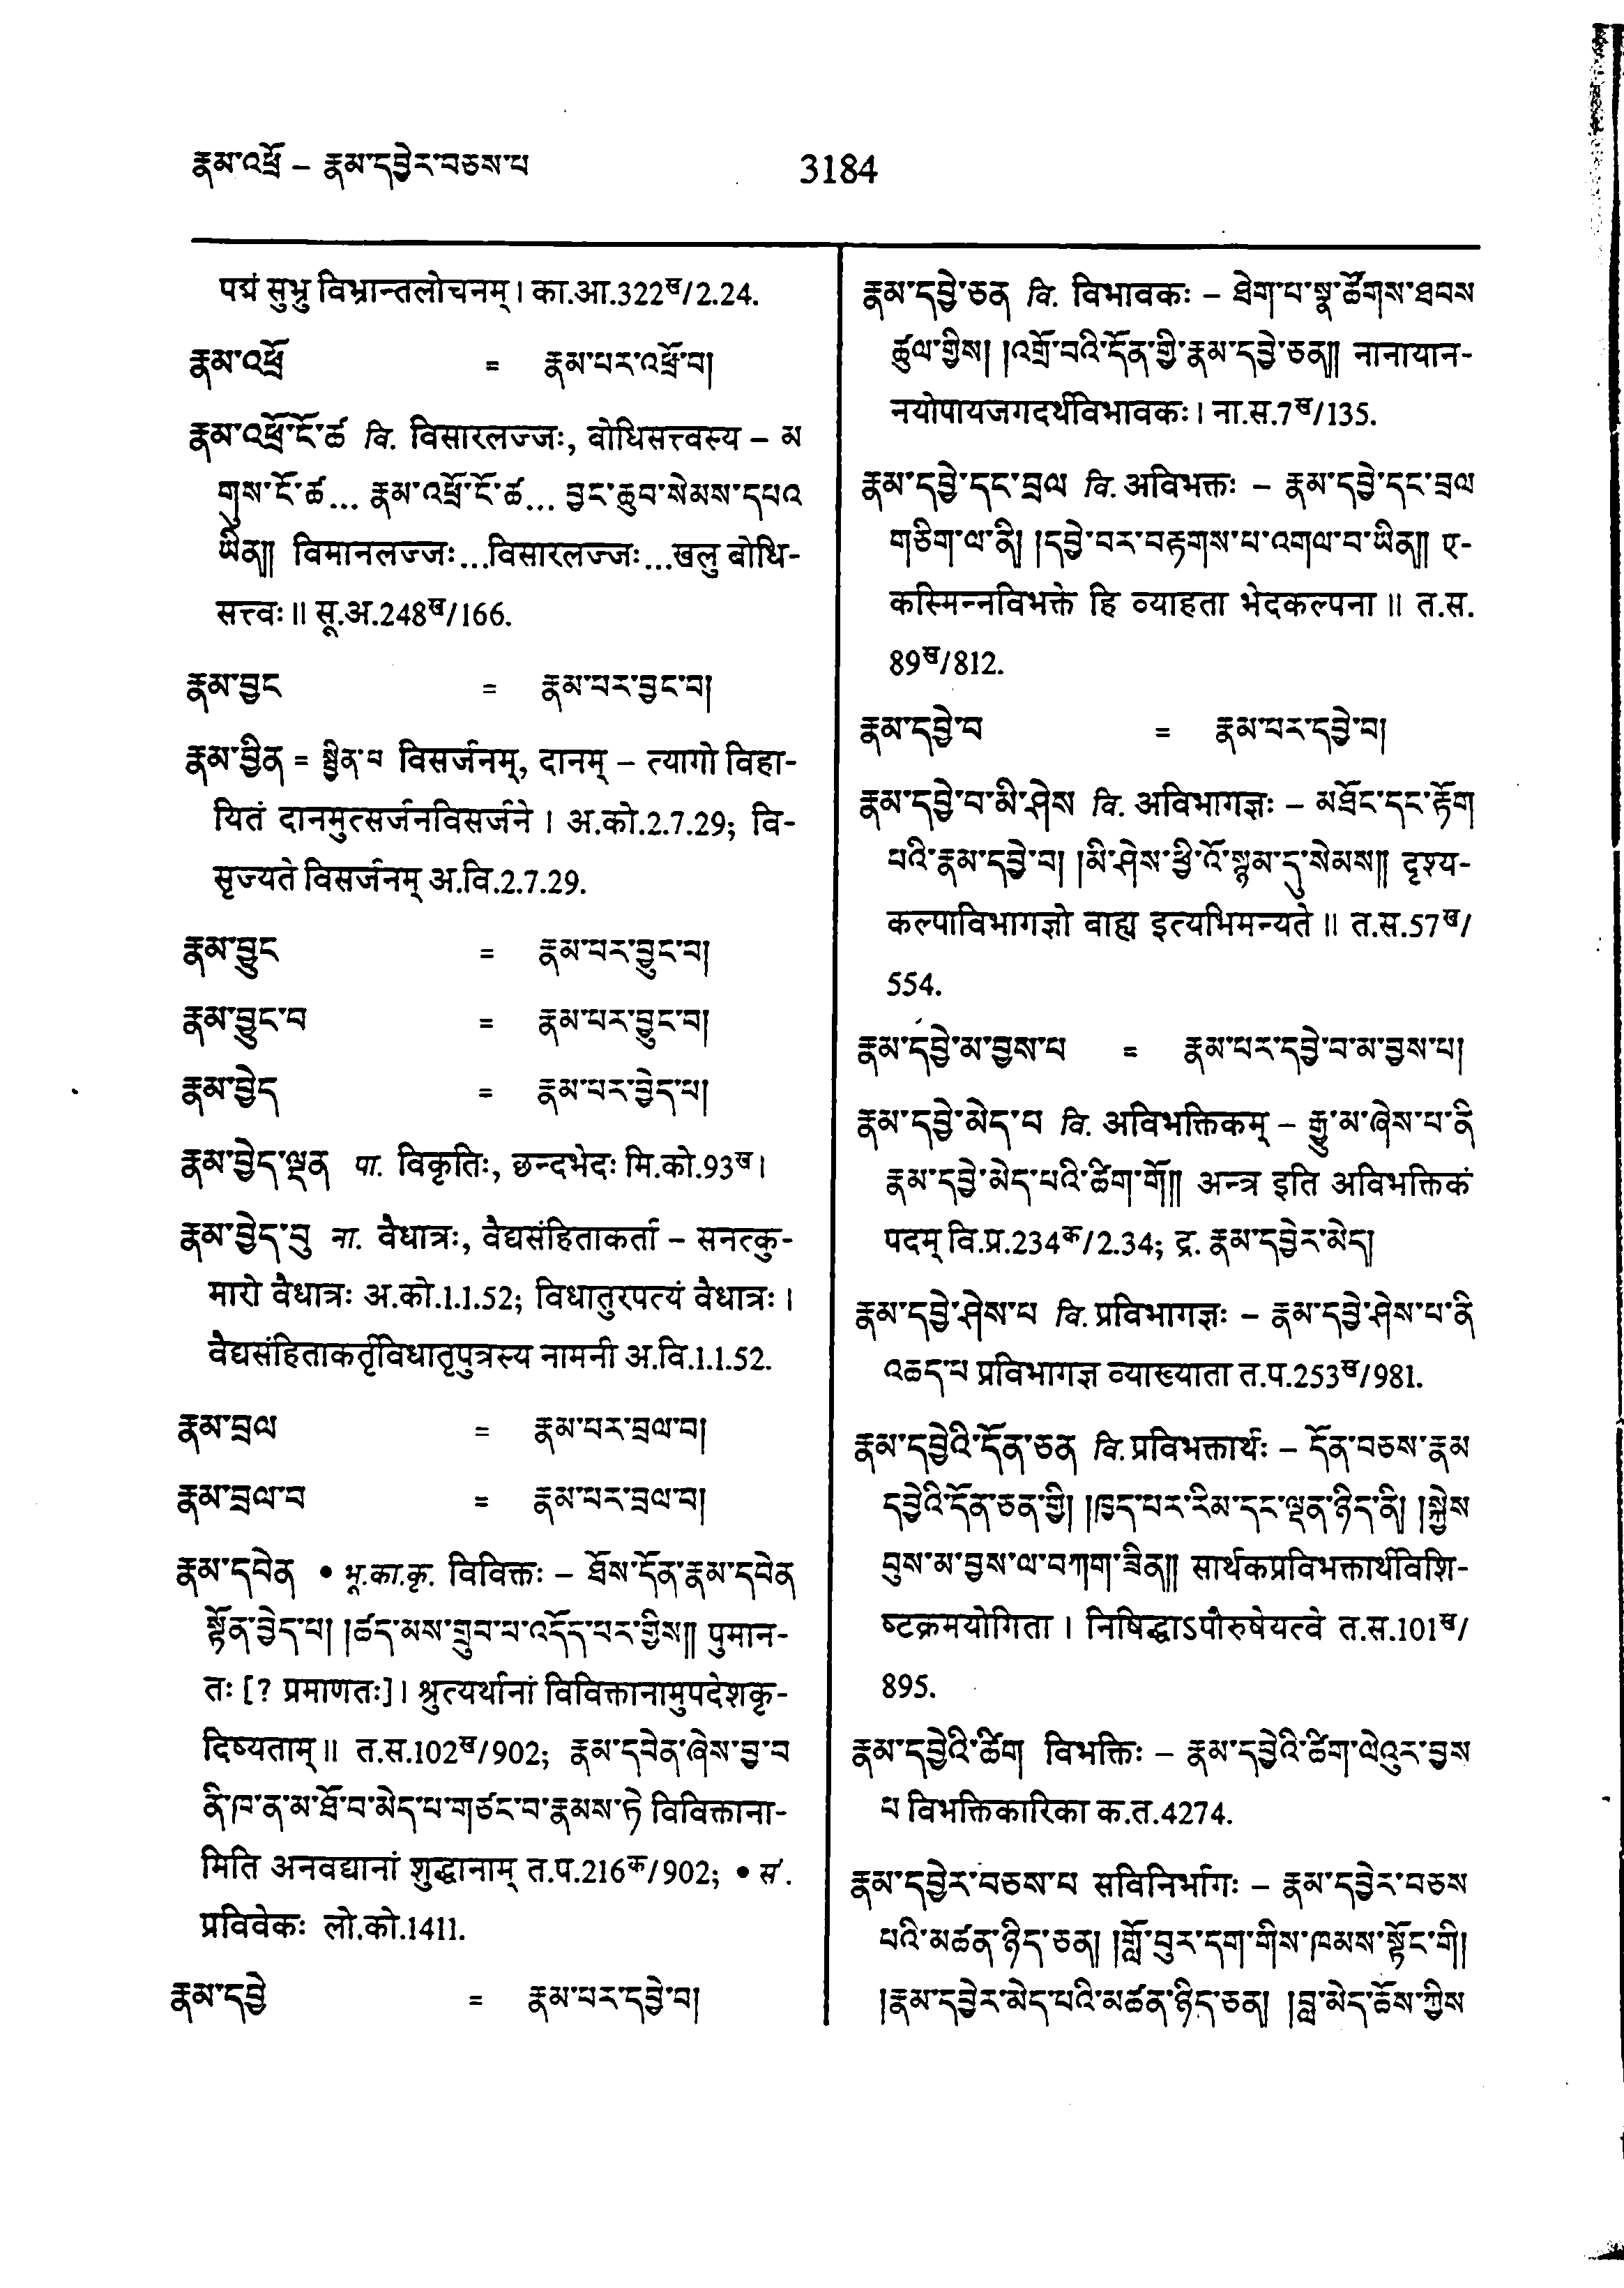 རྣམ་འཕྲོ – རྣམ་དབྱེར་བཅས་པ
3184
पद्मं सुभ्रु विभ्रान्तलोचनम्। का.आ.322ख/2.24.
རྣམ་འཕྲོ = རྣམ་པར་འཕྲོ་བ།
རྣམ་འཕྲོ་ངོ་ཚ वि. विसारलज्जः, बोधिसत्त्वस्य – མ
གུས་ངོ་ཚ... རྣམ་འཕྲོ་ངོ་ཚ... བྱང་ཆུབ་སེམས་དཔའ
ཡིན།། विमानलज्जः...विसारलज्जः...खलु बोधि-
सत्त्वः॥ सू.अ.248ख/166.
རྣམ་བྱང = རྣམ་པར་བྱང་བ།
རྣམ་བྱིན = སྦྱིན་པ विसर्जनम्, दानम् – त्यागो विहा-
यितं दानमुत्सर्जनविसर्जने। अ.को.2.7.29; वि-
सृज्यते विसर्जनम् अ.वि.2.7.29.
རྣམ་བྱུང = རྣམ་པར་བྱུང་བ།
རྣམ་བྱུང་བ = རྣམ་པར་བྱུང་བ།
རྣམ་བྱེད = རྣམ་པར་བྱེད་པ།
རྣམ་བྱེད་ལྡན पा. विकृतिः, छन्दभेदः मि.को.93ख।
རྣམ་བྱེད་བུ ना. वैधात्रः, वैद्यसंहिताकर्ता – सनत्कु-
मारो वैधात्रः अ.को.1.1.52; विधातुरपत्यं वैधात्रः।
वैद्यसंहिताकर्तृविधातृपुत्रस्य नामनी अ.वि.1.1.52.
རྣམ་བྲལ = རྣམ་པར་བྲལ་བ།
རྣམ་བྲལ་བ = རྣམ་པར་བྲལ་བ།
རྣམ་དབེན • भू.का.कृ. विविक्तः – ཐོས་དོན་རྣམ་དབེན
སྟོན་བྱེད་པ། །ཚད་མས་གྲུབ་པ་འདོད་པར་གྱིས།། पुमान-
तः [? प्रमाणतः]। श्रुत्यर्थानां विविक्तानामुपदेशकृ-
दिष्यताम्॥ त.स.102ख/902; རྣམ་དབེན་ཞེས་བྱ་བ
ནི་ཁ་ན་མ་ཐོ་བ་མེད་པ་གཙང་བ་རྣམས་ཏེ विविक्ताना-
मिति अनवद्यानां शुद्धानाम् त.प.216क/902; • सं.
प्रविवेकः लो.को.1411.
རྣམ་དབྱེ = རྣམ་པར་དབྱེ་བ།
རྣམ་དབྱེ་ཅན वि. विभावकः – ཐེག་པ་སྣ་ཚོགས་ཐབས
ཚུལ་གྱིས། །འགྲོ་བའི་དོན་གྱི་རྣམ་དབྱེ་ཅན།། नानायान-
नयोपायजगदर्थविभावकः। ना.स.7ख/135.
རྣམ་དབྱེ་དང་བྲལ वि. अविभक्तः – རྣམ་དབྱེ་དང་བྲལ
གཅིག་ལ་ནི། །དབྱེ་བར་བརྟགས་པ་འགལ་བ་ཡིན།། ए-
कस्मिन्नविभक्ते हि व्याहता भेदकल्पना॥ त.स.
89ख/812.
རྣམ་དབྱེ་བ = རྣམ་པར་དབྱེ་བ།
རྣམ་དབྱེ་བ་མི་ཤེས वि. अविभागज्ञः – མཐོང་དང་རྟོག
པའི་རྣམ་དབྱེ་བ། །མི་ཤེས་ཕྱི་འོ་སྙམ་དུ་སེམས།། दृश्य-
कल्पाविभागज्ञो बाह्य इत्यभिमन्यते॥ त.स.57ख/
554.
རྣམ་དབྱེ་མ་བྱས་པ = རྣམ་པར་དབྱེ་བ་མ་བྱས་པ།
རྣམ་དབྱེ་མེད་པ वि. अविभक्तिकम् – རྒྱུ་མ་ཞེས་པ་ནི
རྣམ་དབྱེ་མེད་པའི་ཚིག་གོ།། अन्त्र इति अविभक्तिकं
पदम् वि.प्र.234क/2.34; द्र. རྣམ་དབྱེར་མེད།
རྣམ་དབྱེ་ཤེས་པ वि. प्रविभागज्ञः – རྣམ་དབྱེ་ཤེས་པ་ནི
འཆད་པ प्रविभागज्ञ व्याख्याता त.प.253ख/981.
རྣམ་དབྱེའི་དོན་ཅན वि. प्रविभक्तार्थः – དོན་བཅས་རྣམ
དབྱེའི་དོན་ཅན་གྱི། །ཁྱད་པར་རིམ་དང་ལྡན་ཉིད་ནི། །སྐྱེས
བུས་མ་བྱས་ལ་བཀག་ཟིན།། सार्थकप्रविभक्तार्थविशि-
ष्टक्रमयोगिता। निषिद्धाऽपौरुषेयत्वे त.स.101ख/
895.
རྣམ་དབྱེའི་ཚིག विभक्तिः – རྣམ་དབྱེའི་ཚིག་ལེའུར་བྱས
པ विभक्तिकारिका क.त.4274.
རྣམ་དབྱེར་བཅས་པ सविनिर्भागः – རྣམ་དབྱེར་བཅས
པའི་མཚན་ཉིད་ཅན། །གློ་བུར་དག་གིས་ཁམས་སྟོང་གི།
།རྣམ་དབྱེར་མེད་པའི་མཚན་ཉིད་ཅན། །བླ་མེད་ཆོས་ཀྱིས